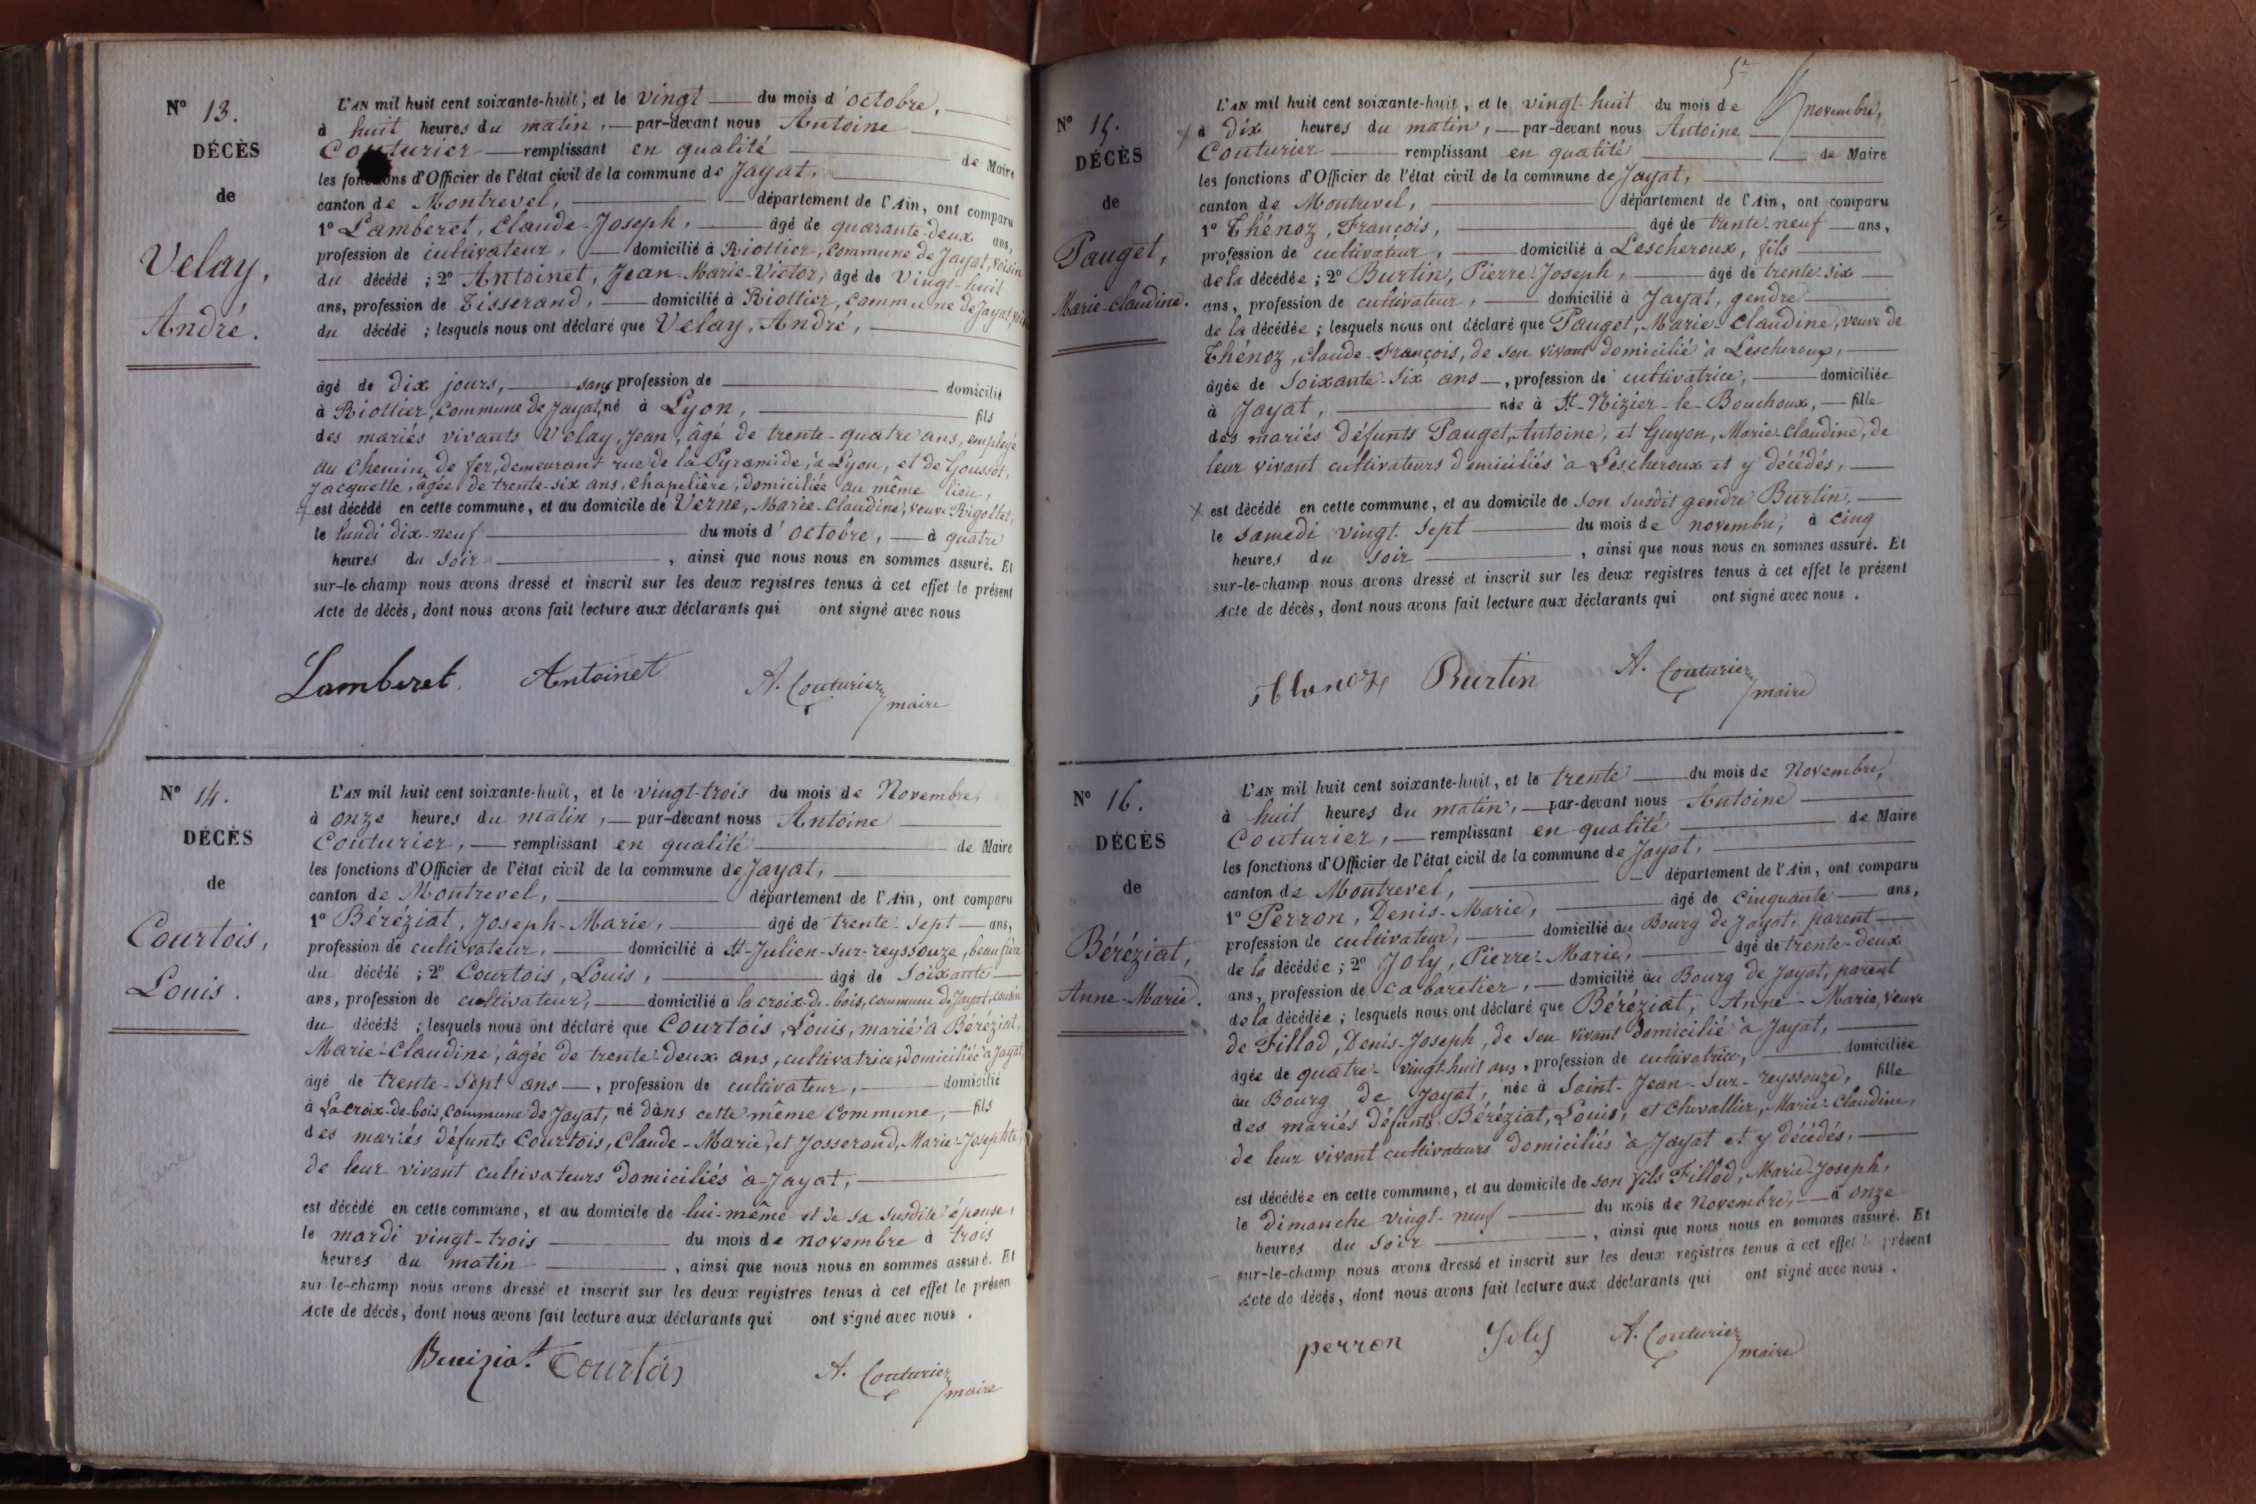 N° 13.
DÉCÈS
de
Velay,
André.
L'AN mil huit cent soixante-huit, et le vingt du mois d'octobre,
à huit heures du matin, par-devant nous Antoine
Couturier remplissant en qualité de Maire
les fonctions d'Officier de l'état civil de la commune de Jayat,
canton de Montrevel, département de l'Ain, ont comparu
1° Lamberet, Claude-Joseph, âgé de quarante-deux ans,
profession de cultivateur, domicilié à Riottier, commune de Jayat, voisin
du décédé ; 2° Antoinet, Jean-Marie-Victor, âgé de vingt-huit
ans, profession de Tisserand, domicilié à Riottier, commune de Jayat,
du décédé ; lesquels nous ont déclaré que Velay, André,
âgé de dix jours, sans profession de domicilié
à Riottier, commune de Jayat, né à Lyon, fils
des mariés vivants Velay, Jean, âgé de trente-quatre ans, employé
au chemin de fer, demeurant rue de la Pyramide, à Lyon, et de Goussot,
Jacquette, âgée de trente-six ans, chapelière, domiciliée au même lieu,
est décédé en cette commune, et au domicile de Verne, Marie-Claudine, veuve Rigollet,
le lundi dix-neuf du mois d'octobre, à quatre
heures du soir, ainsi que nous nous en sommes assuré. Et
sur-le-champ nous avons dressé et inscrit sur les deux registres tenus à cet effet le présent
Acte de décès, dont nous avons fait lecture aux déclarants qui ont signé avec nous
Lamberet. Antoinet A. Couturier
maire
N° 14.
DÉCÈS
de
Courtois,
Louis.
L'AN mil huit cent soixante-huit, et le vingt-trois du mois de Novembre,
à onze heures du matin, par-devant nous Antoine
Couturier, remplissant en qualité de Maire
les fonctions d'Officier de l'état civil de la commune de Jayat,
canton de Montrevel, département de l'Ain, ont comparu
1° Béréziat, Joseph-Marie, âgé de trente-sept ans,
profession de cultivateur, domicilié à St-Julien-sur-reyssouze, beau frère
du décédé ; 2° Courtois, Louis, âgé de soixante
ans, profession de cultivateur, domicilié à la croix-de-bois, commune de Jayat, cousin
du décédé ; lesquels nous ont déclaré que Courtois, Louis, marié à Béréziat,
Marie-Claudine, âgée de trente-deux ans, cultivatrice, domiciliée à Jayat,
âgé de trente-sept ans, profession de cultivateur, domicilié
à La croix-de-bois, commune de Jayat, né dans cette même commune, fils
des mariés défunts Courtois, Claude-Marie, et Josserand, Marie-Josephte,
de leur vivant cultivateurs domiciliés à Jayat,
est décédé en cette commune, et au domicile de lui-même et de sa susdite épouse,
le mardi vingt-trois du mois de novembre à trois
heures du matin, ainsi que nous nous en sommes assuré. Et
sur-le-champ nous avons dressé et inscrit sur les deux registres tenus à cet effet le présen
Acte de décès, dont nous avons fait lecture aux déclarants qui ont signé avec nous.
Courtois A. Couturier
maire
N° 15.
DÉCÈS
de
Pauget,
Marie-Claudine.
L'AN mil huit cent soixante-huit, et le vingt-huit du mois de novembre,
à dix heures du matin, par-devant nous Antoine
Couturier remplissant en qualité de Maire
les fonctions d'Officier de l'état civil de la commune de Jayat,
canton de Montrevel, département de l'Ain, ont comparu
1° Thénoz, François, âgé de trente-neuf ans,
profession de cultivateur, domicilié à Lescheroux, fils
de la décédée ; 2° Burtin, Pierre-Joseph, âgé de trente-six
ans, profession de cultivateur, domicilié à Jayat, gendre
de la décédée ; lesquels nous ont déclaré que Pauget, Marie-Claudine, veuve de
Thénoz, Claude-François, de son vivant domicilié à Lescheroux,
âgée de soixante-six ans, profession de cultivatrice, domiciliée
à Jayat, née à St-Nizier-le-Bouchoux, fille
des mariés défunts Pauget, Antoine, et Guyon, Marie-Claudine, de
leur vivant cultivateurs domiciliés à Lescheroux et y décédés,
est décédé en cette commune, et au domicile de son susdit gendre Burtin,
le samedi vingt-sept du mois de novembre, à cinq
heures du soir, ainsi que nous nous en sommes assuré. Et
sur-le-champ nous avons dressé et inscrit sur les deux registres tenus à cet effet le présent
Acte de décès, dont nous avons fait lecture aux déclarants qui ont signé avec nous.
Burtin A. Couturier
maire
N° 16.
DÉCÈS
de
Béréziat,
Anne-Marie.
L'AN mil huit cent soixante-huit, et le trente du mois de Novembre,
à huit heures du matin, par-devant nous Antoine
Couturier, remplissant en qualité de Maire
les fonctions d'Officier de l'état civil de la commune de Jayat,
canton de Montrevel, département de l'Ain, ont comparu
1° Perron, Denis-Marie, âgé de cinquante ans,
profession de cultivateur, domicilié au Bourg de Jayat, parent
de la décédée ; 2° Joly, Pierre-Marie, âgé de trente-deux
ans, profession de cabaretier, domicilié au Bourg de Jayat, parent
de la décédée ; lesquels nous ont déclaré que Béréziat, Anne-Marie, veuve
de Fillod, Denis-Joseph, de son vivant domicilié à Jayat,
âgée de quatre-vingt-huit ans, profession de cultivatrice, domiciliée
au Bourg de Jayat, née à Saint-Jean-sur-reyssouze, fille
des mariés défunts Béréziat, Louis, et Chevallier, Marie-Claudine,
de leur vivant cultivateurs domiciliés à Jayat et y décédés,
est décédée en cette commune, et au domicile de son fils Fillod, Marie-Joseph,
le dimanche vingt-neuf du mois de Novembre, à onze
heures du soir, ainsi que nous nous en sommes assuré. Et
sur-le-champ nous avons dressé et inscrit sur les deux registres tenus à cet effet le présent
Acte de décès, dont nous avons fait lecture aux déclarants qui ont signé avec nous.
perron Joly A. Couturier
maire